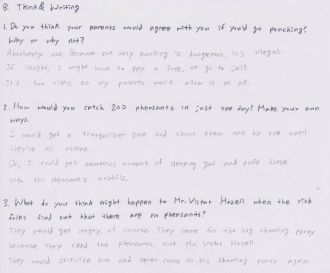 B. Think & Writing
1. Do you think your parents would agree with you if you'd go poaching?
Why or why not?
Absolutely not. Because not only poaching is dangerous, it's illegal.
If caught, I might have to pay a fine, or go to jail.
It's too risky, so my parents won't allow it at all.
2. How would you catch 200 pheasants in just one day? Make your own
ways.
I would get a tranquilizer gun and shoot them one by one until
they're all asleep.
Or, I could get enormous amount of sleeping gas and puff those
into the pheasant's nostrils.
3. What do you think might happen to Mr. Victor Hazell when the rich
folks find out that there are no pheasants?
They would get angry, of course. They came for the big shooting party
because they liked the pheasants, not Mr. Victor Hazell.
They would criticise him and never come to his shooting party again.